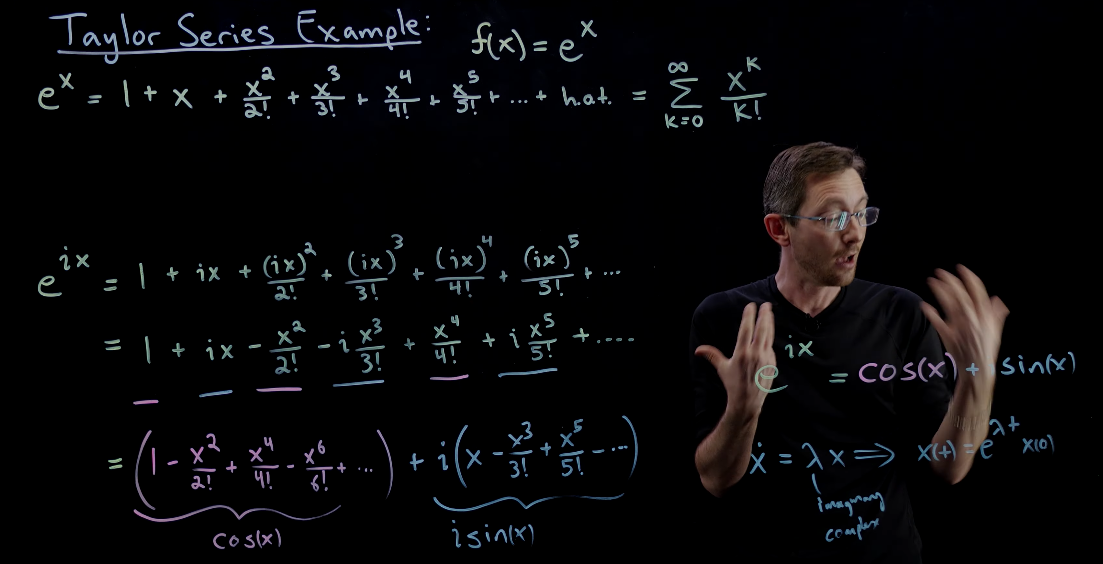 Taylor Series Example: f(x) = e^x
e^x = 1 + x + x^2/2! + x^3/3! + x^4/4! + x^5/5! + ... + h.o.t. = ∑_{k=0}^{∞} x^k/k!
e^{ix} = 1 + ix + (ix)^2/2! + (ix)^3/3! + (ix)^4/4! + (ix)^5/5! + ...
= 1 + ix - x^2/2! - i x^3/3! + x^4/4! + i x^5/5! + ....
e^{ix} = cos(x) + i sin(x)
= (1 - x^2/2! + x^4/4! - x^6/6! + ...) + i(x - x^3/3! + x^5/5! - ...)
cos(x) i sin(x)
ẋ = λx ⟹ x(t) = e^{λt} x(0)
imaginary
complex